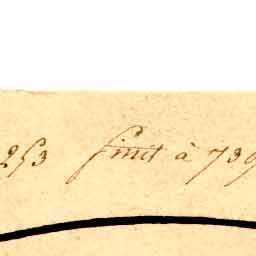 253 finit à 739